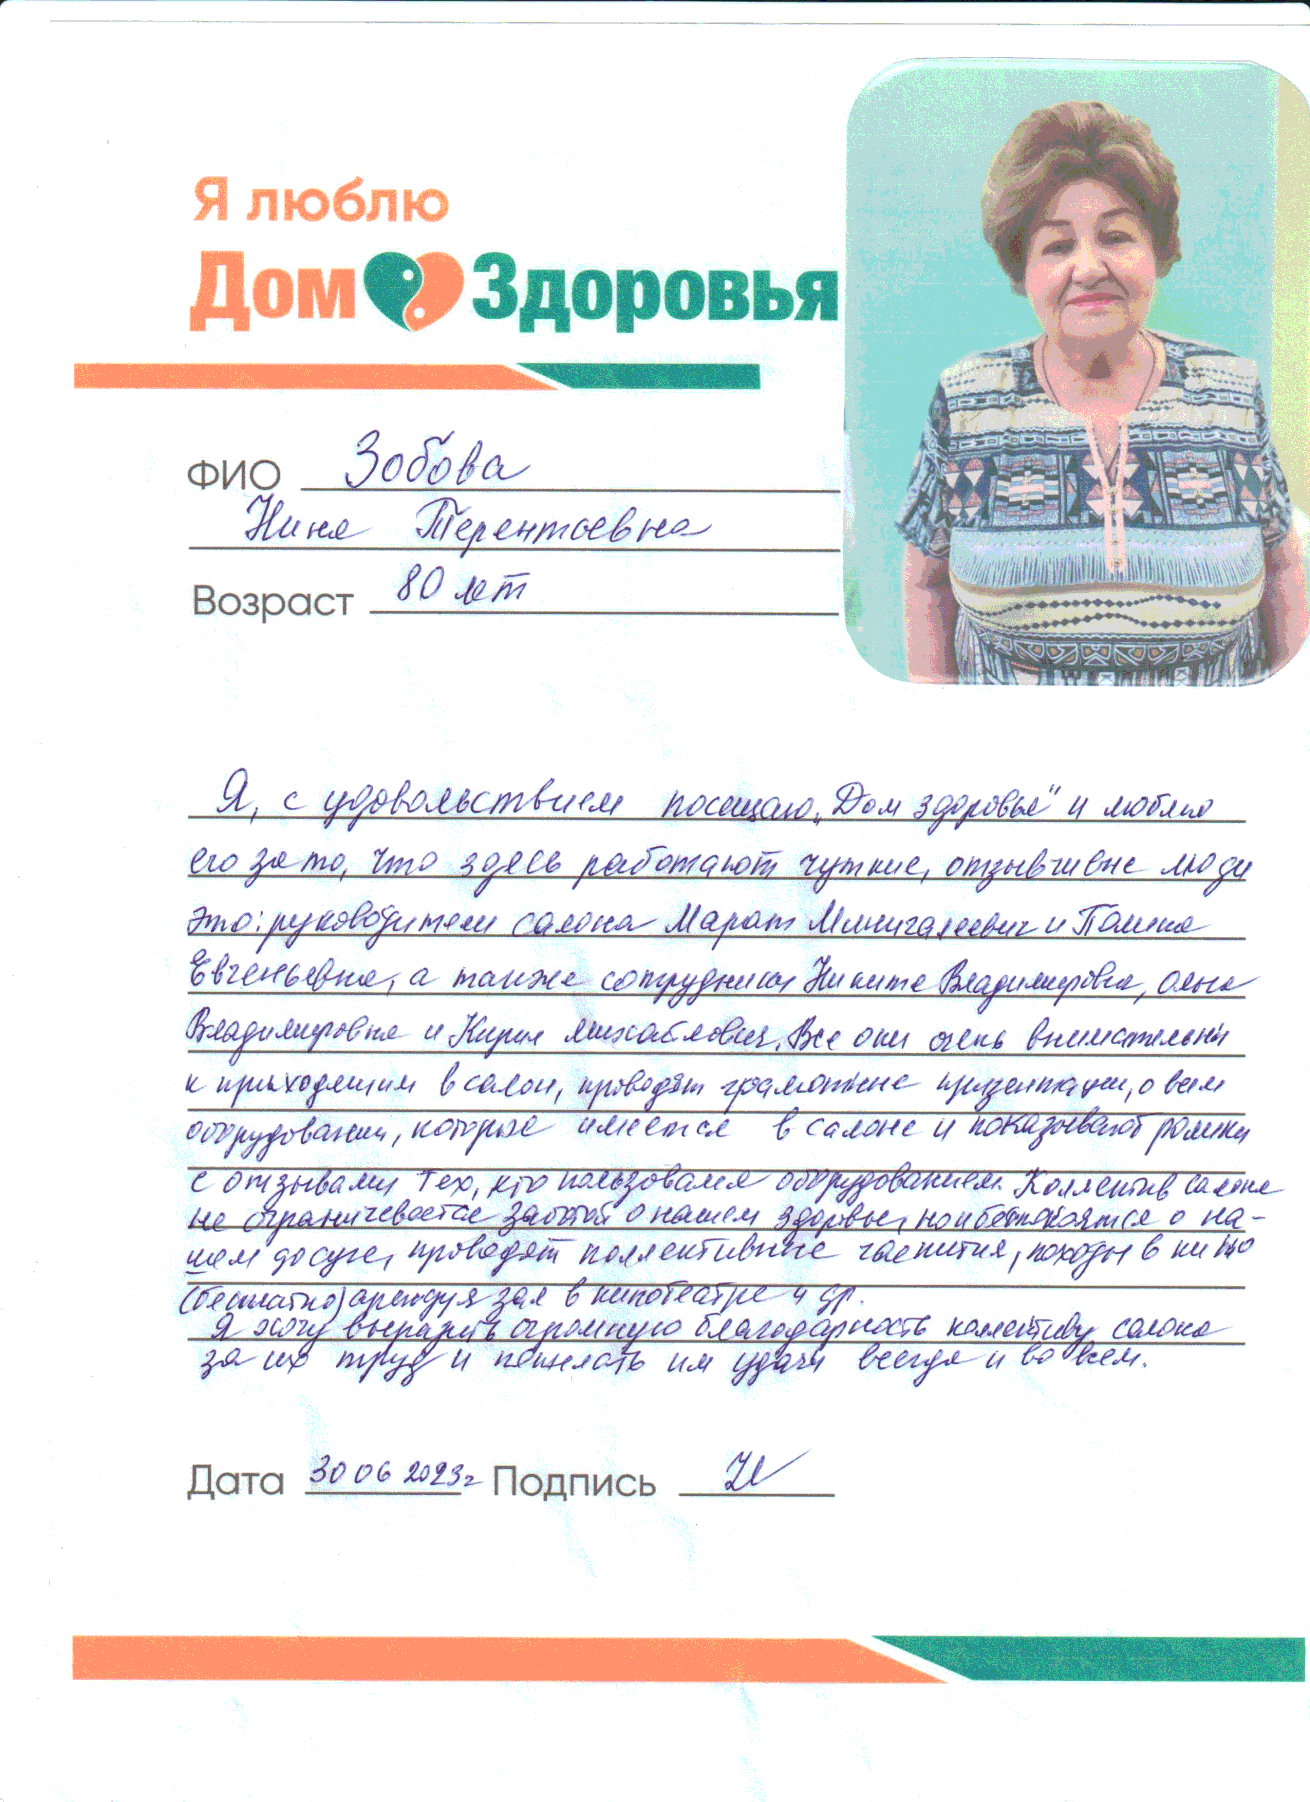 Я люблю
Дом Здоровья
ФИО Зобова
Нина Терентьевна
Возраст 80 лет
Я, с удовольствием посещаю „Дом здоровья" и люблю
его за то, что здесь работают чуткие, отзывчивые люди
это: руководители салона Марат Минигалеевич и Полина
Евгеньевна, а также сотрудники Никита Владимирович, Ольга
Владимировна и Кирил Михайлович. Все они очень внимательны
к приходящим в салон, проводят грамотные презентации, о всем
оборудовании, которые имеется в салоне и показывают ролики
с отзывами тех, кто пользовался оборудованием. Коллектив салона
не ограничевается заботой о нашем здоровье, но и беспокоятся о на-
шем досуге, проводят коллективные чаепития, походы в кино
(бесплатно) арендуя зал в кинотеатре и др.
Я хочу выразить огромную благодарность коллективу салона
за их труд и пожелать им удачи всегда и во всем.
Дата 30 06 2023г Подпись